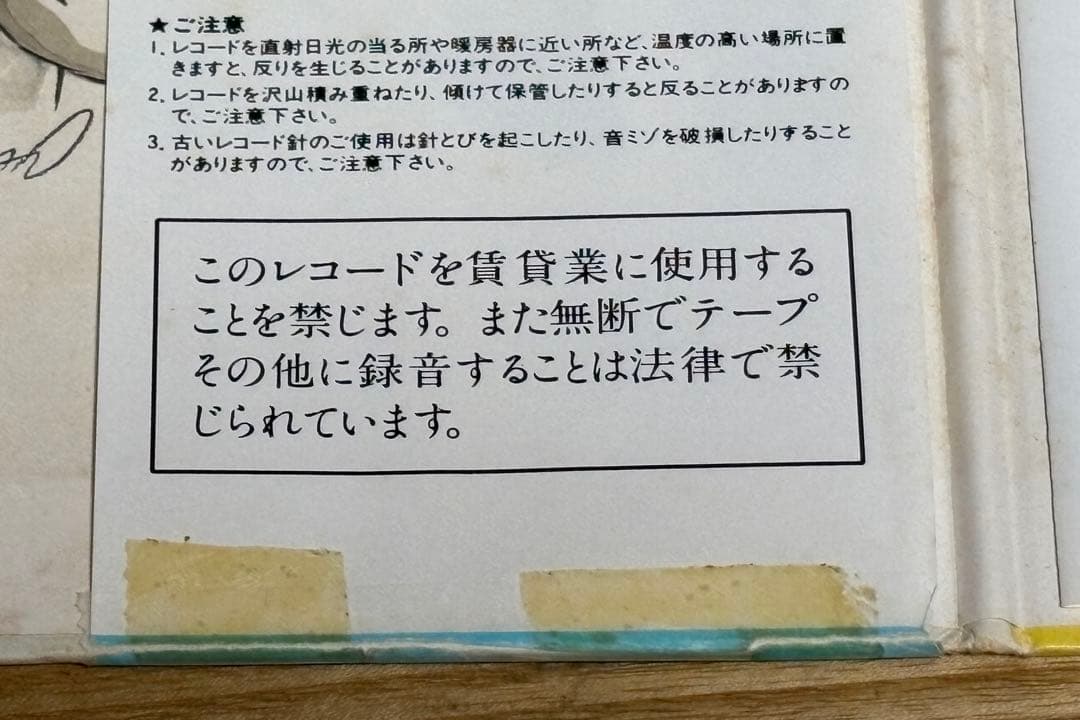 ★ご注意
1. レコードを直射日光の当る所や暖房器に近い所など、温度の高い場所に置
きますと、反りを生じることがありますので、ご注意下さい。
2. レコードを沢山積み重ねたり、傾けて保管したりすると反ることがありますの
で、ご注意下さい。
3. 古いレコード針のご使用は針とびを起こしたり、音ミゾを破損したりすること
がありますので、ご注意下さい。
このレコードを賃貸業に使用する
ことを禁じます。また無断でテープ
その他に録音することは法律で禁
じられています。